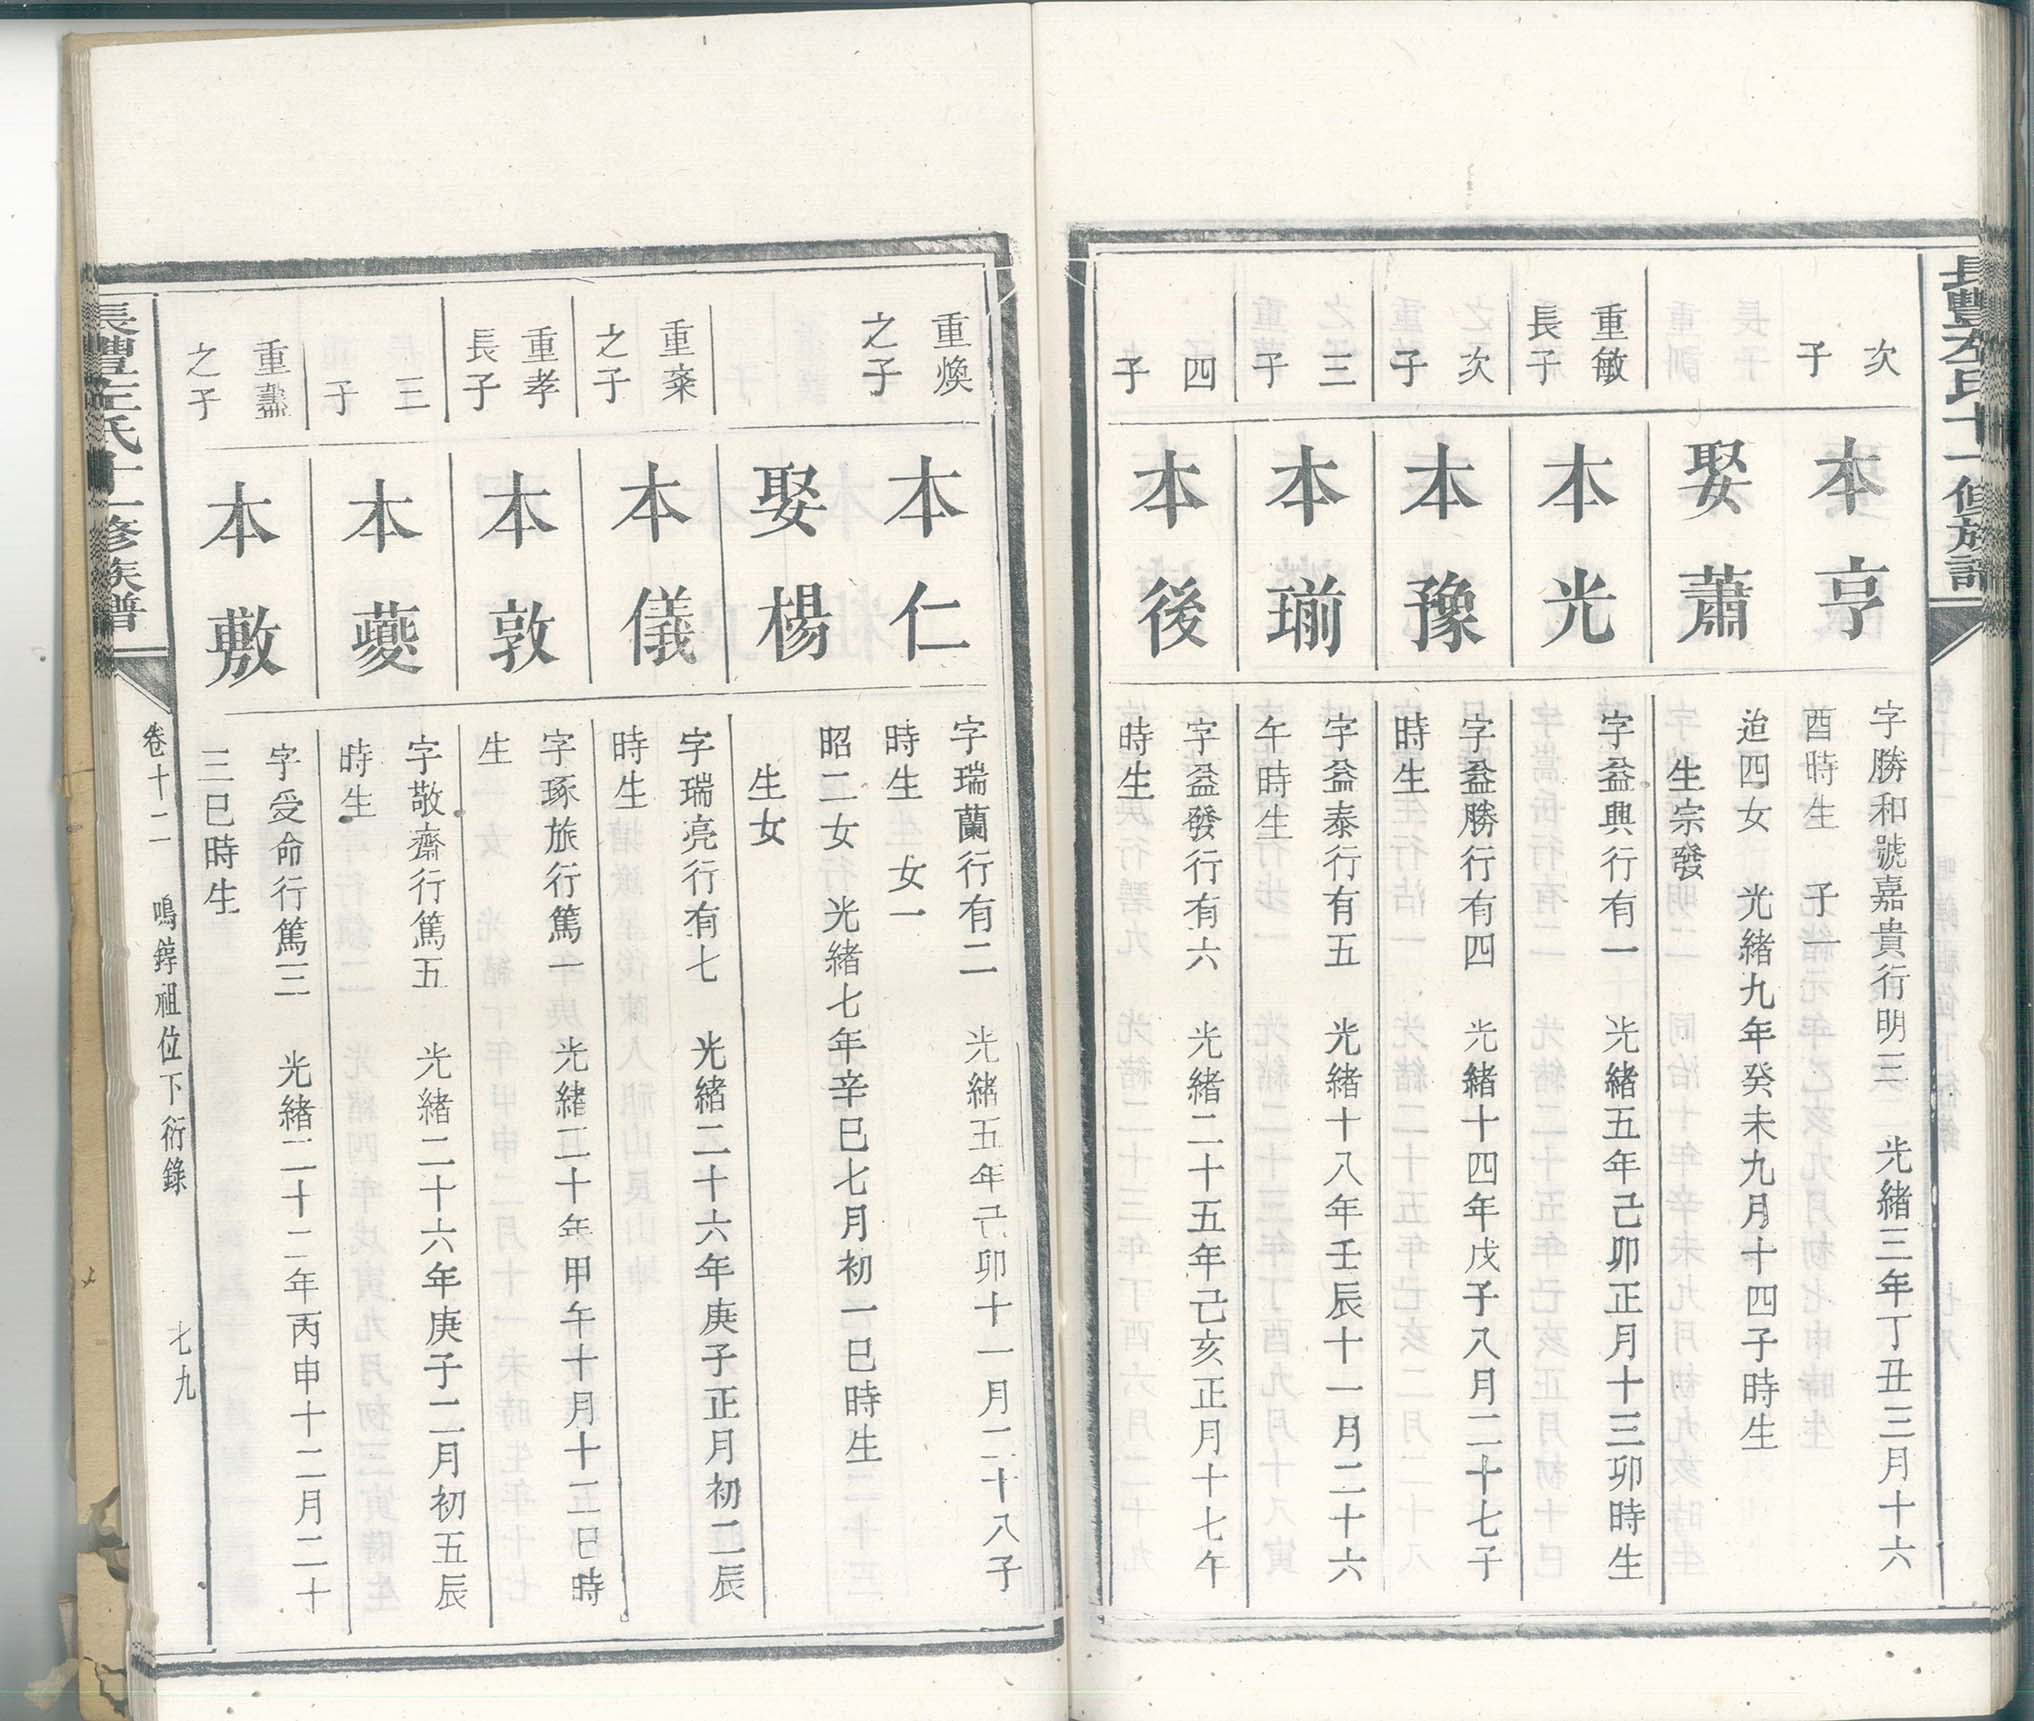 長豐左氏十一修族譜
次子
本亨
字勝和號嘉貴行明三 光緒三年丁丑三月十六
酉時生 子一
娶蕭
迨四女 光緒九年癸未九月十四子時生
生宗發
重敏長子
本光
字益興行有一 光緒五年己卯正月十三卯時生
次子
本豫
字益勝行有四 光緒十四年戊子八月二十七子
時生
三子
本瑐
字益泰行有五 光緒十八年壬辰十一月二十六
午時生
四子
本後
字益發行有六 光緒二十五年己亥正月十七午
時生
重煥之子
本仁
字瑞蘭行有二 光緒五年己卯十一月二十八子
時生 女一
娶楊
昭二女 光緒七年辛巳七月初一巳時生
生女
重棻之子
本儀
字瑞亮行有七 光緒二十六年庚子正月初二辰
時生
重孝長子
本敦
字琢旅行篤一 光緒二十年甲午十月十二巳時
生
三子
本夔
字敬齋行篤五 光緒二十六年庚子二月初五辰
時生
重燾之子
本敷
字受命行篤三 光緒二十二年丙申十二月二十
三巳時生
長豐左氏十一修族譜
卷十二 鳴錞祖位下衍錄 七九